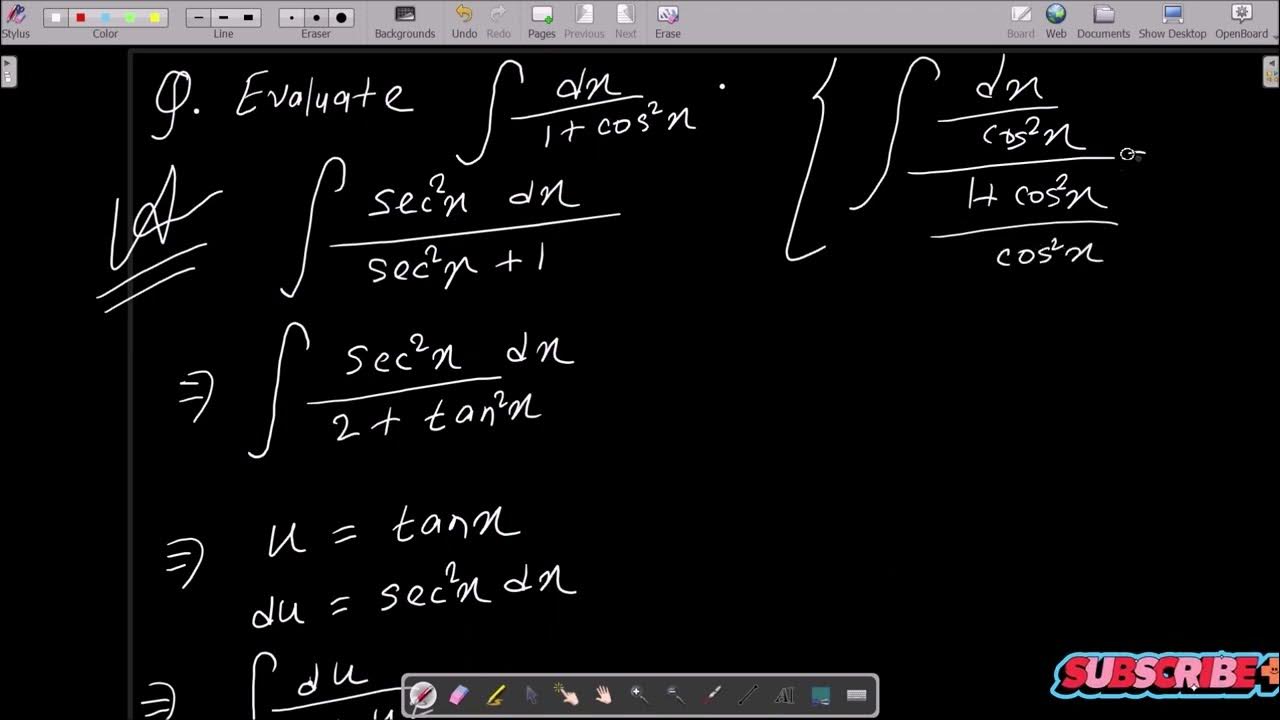 Stylus Color Line Eraser Backgrounds Undo Redo Pages Previous Next Erase Board Web Documents Show Desktop OpenBoard
Q. Evaluate ∫ dx / (1 + cos²x) .
{ ∫ (dx / cos²x) / ((1 + cos²x) / cos²x) =
∫ sec²x dx / (sec²x + 1)
⇒ ∫ sec²x dx / (2 + tan²x)
⇒ u = tanx
du = sec²x dx
⇒ ∫ du
SUBSCRIBE